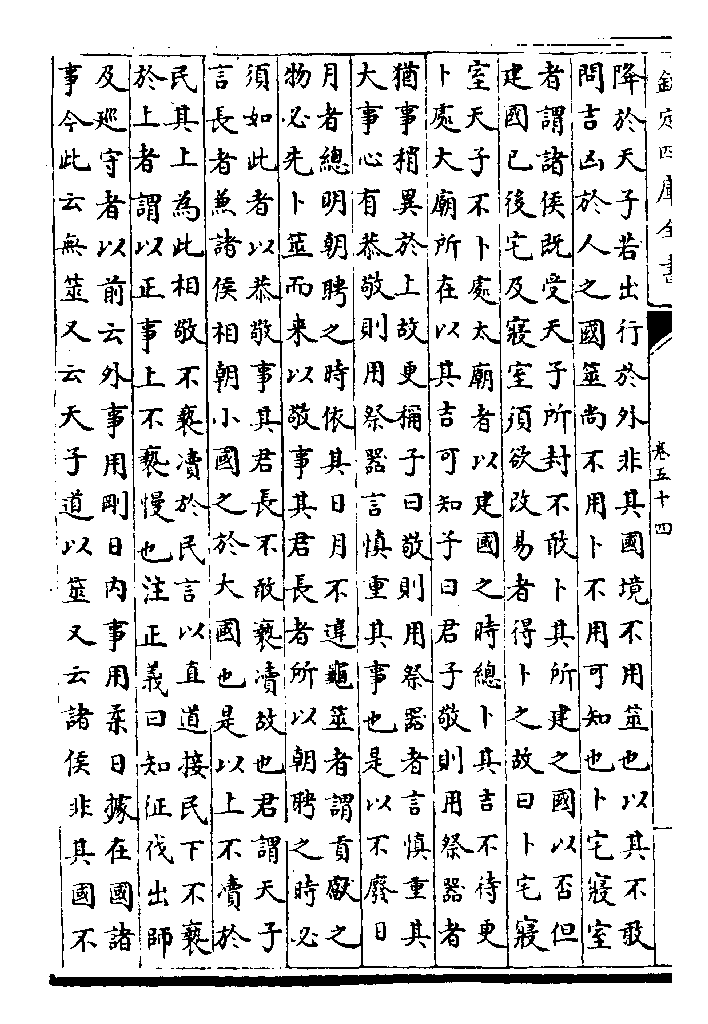 欽定四庫全書
卷五十四
降於天子若出行於外非其國境不用筮也以其不敢
問吉凶於人之國筮尚不用卜不用可知也卜宅寢室
者謂諸侯既受天子所封不敢卜其所建之國以否但
建國已後宅及寢室須欲改易者得卜之故曰卜宅寢
室天子不卜處太廟者以建國之時總卜其吉不待更
卜處大廟所在以其吉可知子曰君子敬則用祭器者
猶事稍異於上故更稱子曰敬則用祭器者言慎重其
大事心有恭敬則用祭器言慎重其事也是以不廢日
月者總明朝聘之時依其日月不違龜筮者謂貢獻之
物必先卜筮而来以敬事其君長者所以朝聘之時必
須如此者以恭敬事其君長不敢褻瀆故也君謂天子
言長者兼諸侯相朝小國之於大國也是以上不瀆於
民其上為此相敬不褻瀆於民言以直道接民下不褻
於上者謂以正事上不褻慢也注正義曰知征伐出師
及廵守者以前云外事用剛日内事用柔日據在國諸
事今此云無筮又云天子道以筮又云諸侯非其國不